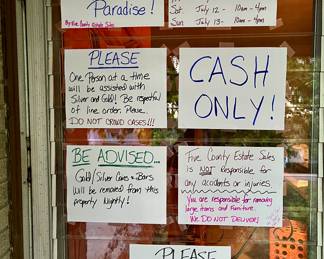 Paradise!
By Five County Estate Sales
Sat July 12 - 10am - 4pm
Sun July 13 - 10am - 4pm
PLEASE
One Person at a time
will be assisted with
Silver and Gold! Be respectful
of line order. Please
DO NOT CROWD CASES!!!
CASH
ONLY!
BE ADVISED...
Gold/Silver Coins + Bars
Will be removed from this
property Nightly!
Five County Estate Sales
is NOT responsible for
any accidents or injuries.
You are responsible for removing
large items and furniture.
We DO NOT DELIVER!
PLEASE